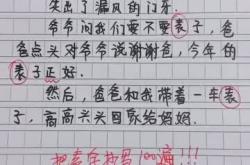 突出了漏风的门牙.
爷爷问我们要不要表子，爸
爸点头对爷爷说谢谢爸，今年的
表子正好.
然后，爸爸和我带着一车表
子，高高兴兴回家给妈妈.
把表字抄写100遍!!!